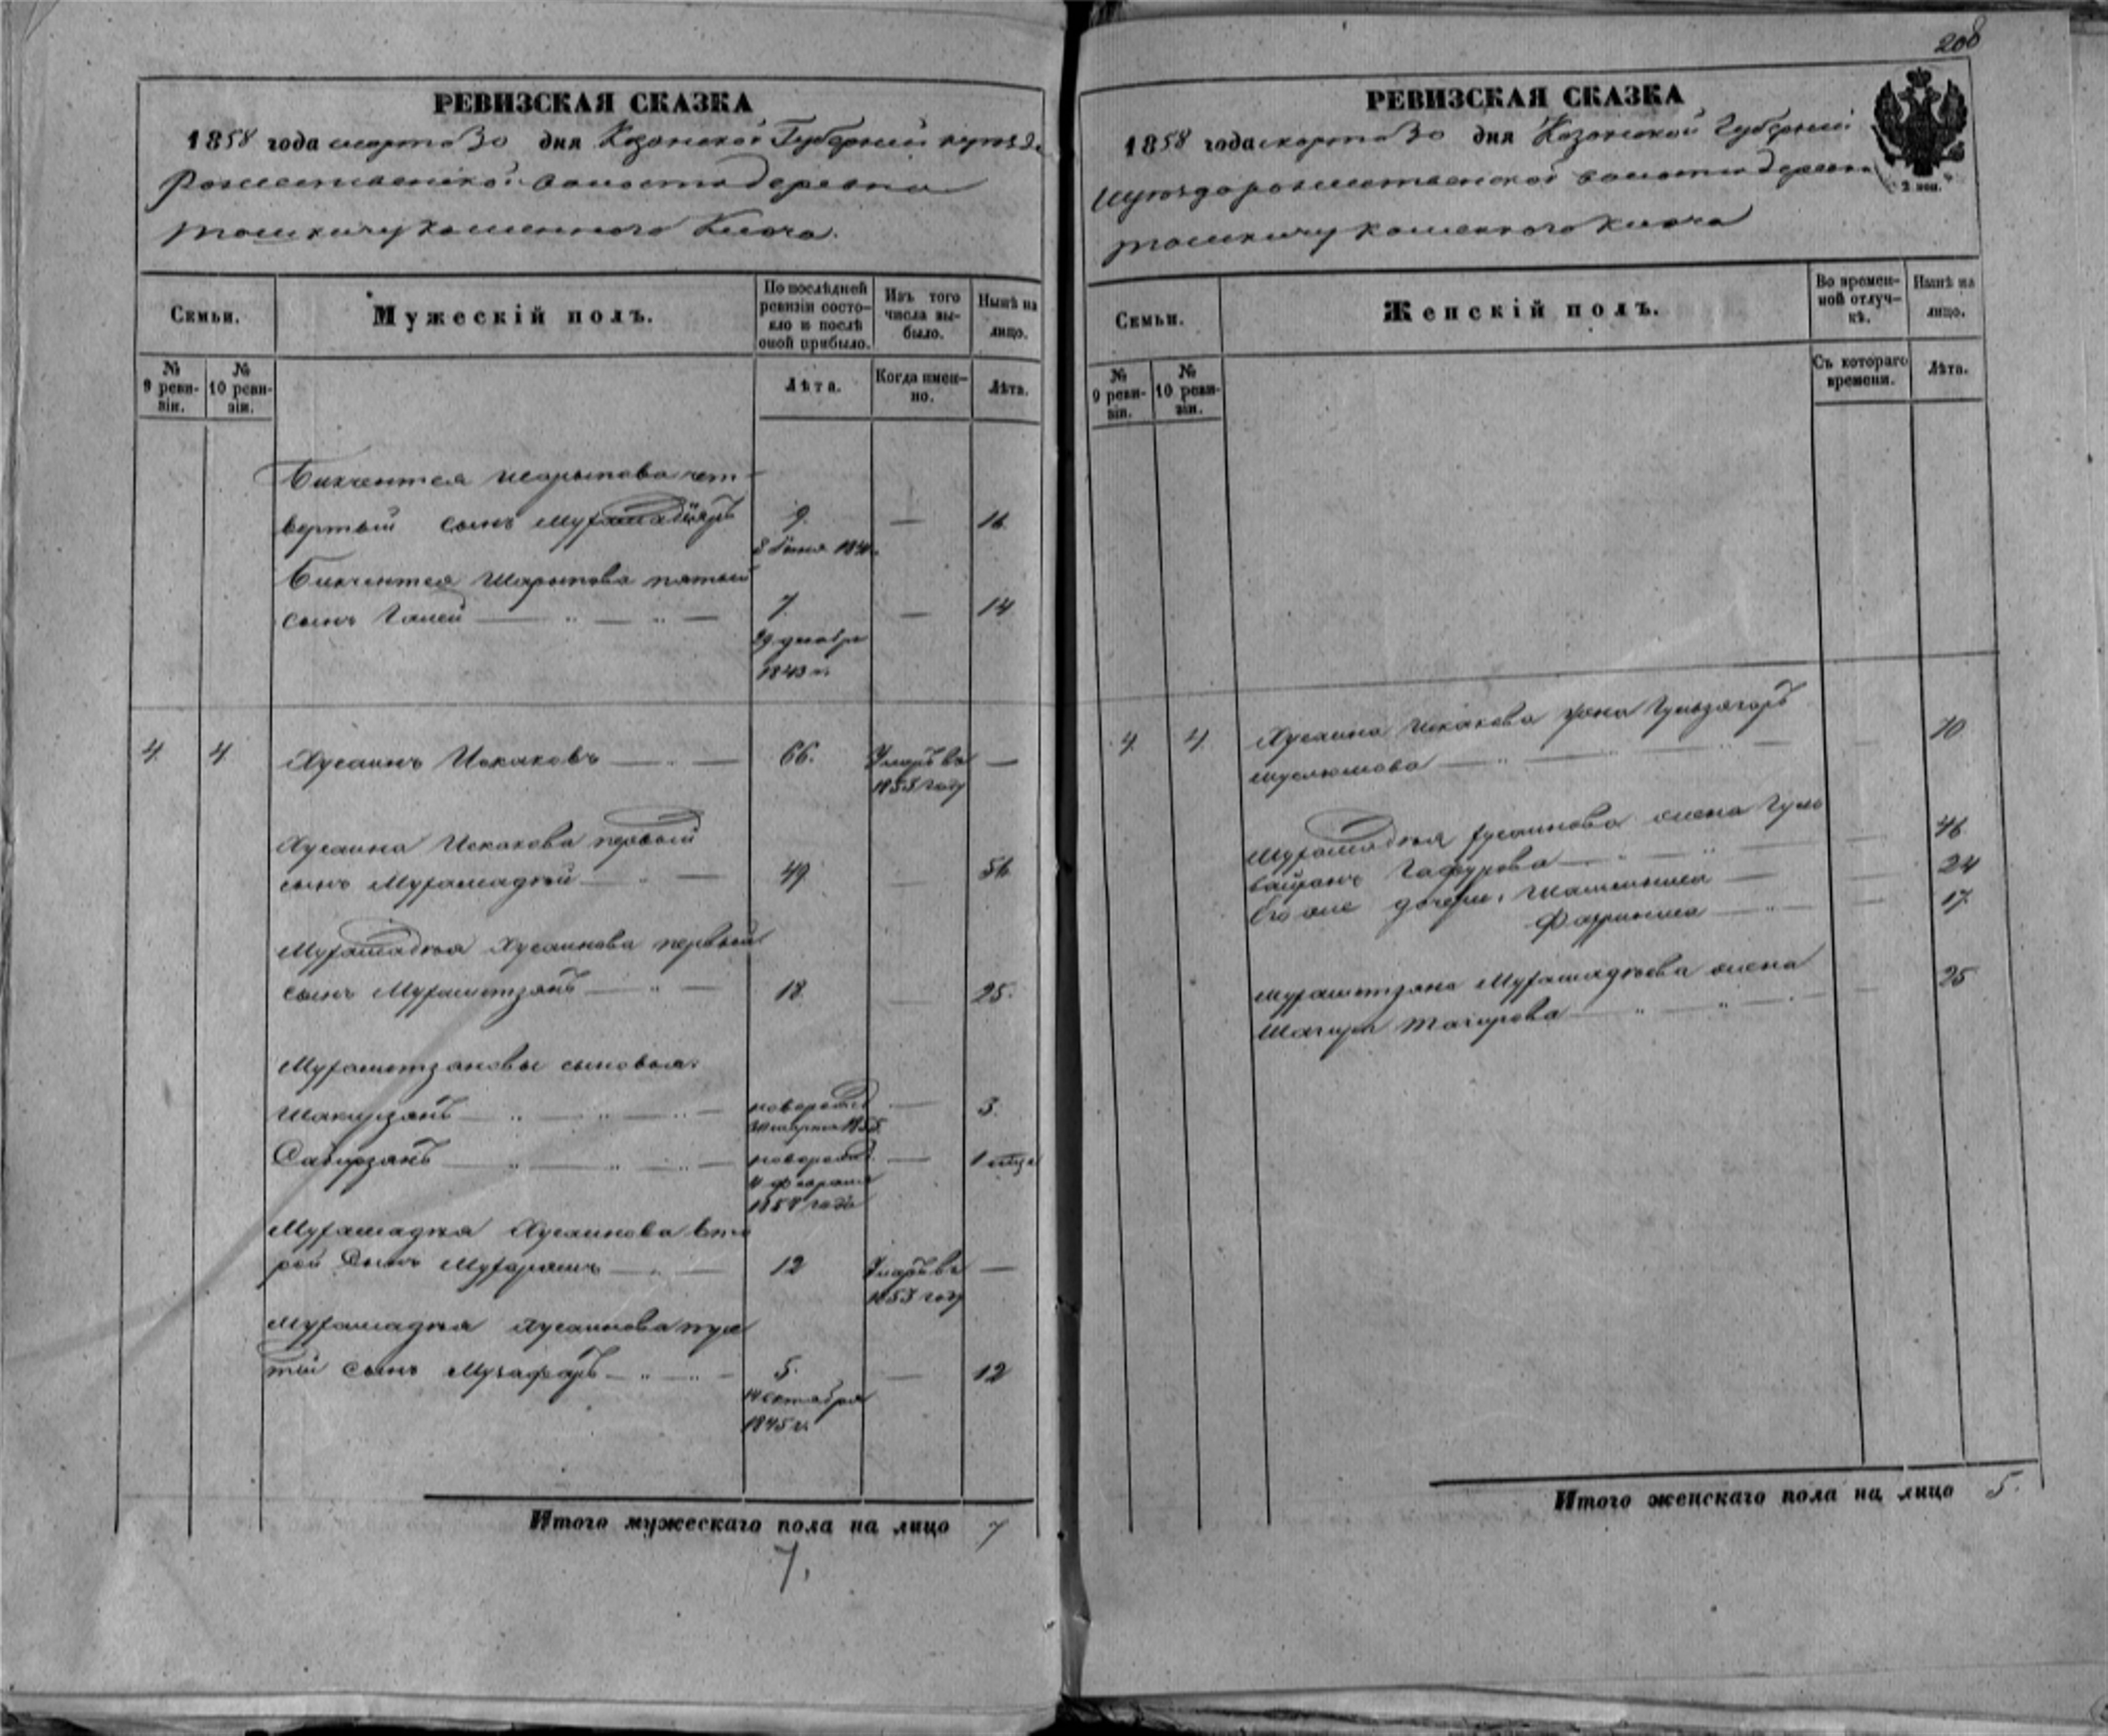 208
РЕВИЗСКАЯ СКАЗКА
1858 года марта 30 дня Казанской Губерніи
волости деревни
Ключа.
Семьи.
Мужескій полъ.
По послѣдней ревизіи состояло и послѣ оной прибыло.
Изъ того числа выбыло.
Нынѣ на лицо.
№ 9 ревизіи.
№ 10 ревизіи.
Лѣта.
Когда именно.
Лѣта.
Бикчентея Шарыпова чет-
вертый сынъ 9. — 16
1841
Бикчентея Шарыпова пятый
сынъ Галей — " — " — 7. — 14
29 декабря
1843 г.
4. 4. Хусаинъ Искаковъ — " — 66. Умеръ въ —
1855 году
Хусаина Искакова первый
сынъ Мухамадѣй — " — 49 — 56
Мухамадѣя Хусаинова первый
сынъ Мухаметзянъ — " — 18. — 25.
Мухаметзяновы сыновья:
Шакирзянъ — " — " — новорожд — 3.
марта 1855
Сабирзянъ — " — " — новорожд. — 1 мѣся
февраля
1858 года
Мухамадѣя Хусаинова вто
рой сынъ — " — 12 Умеръ въ —
1853 году
Мухамадѣя Хусаинова тре
тій сынъ Музафаръ — " — " — 5. — 12
14 октября
1845 г.
Итого мужескаго пола на лицо 7
7.
РЕВИЗСКАЯ СКАЗКА
1858 года марта 30 дня Казанской Губерніи
волости деревни
Ключа
2 коп.
Семьи.
Женскій полъ.
Во временной отлучкѣ.
Нынѣ на лицо.
№ 9 ревизіи.
№ 10 ревизіи.
Съ котораго времени.
Лѣта.
4. 4. Хусаина Искакова жена Гульзягаръ
Муслюмова — " — " — 70
Мухамадѣя Хусаинова жена Гуль
Гафурова — " — " — 46
Его же дочери: — 24
— " — 17
Мухаметзяна Мухамадѣева жена
Шагира Тагирова — " — " — 25
Итого женскаго пола на лицо 5.